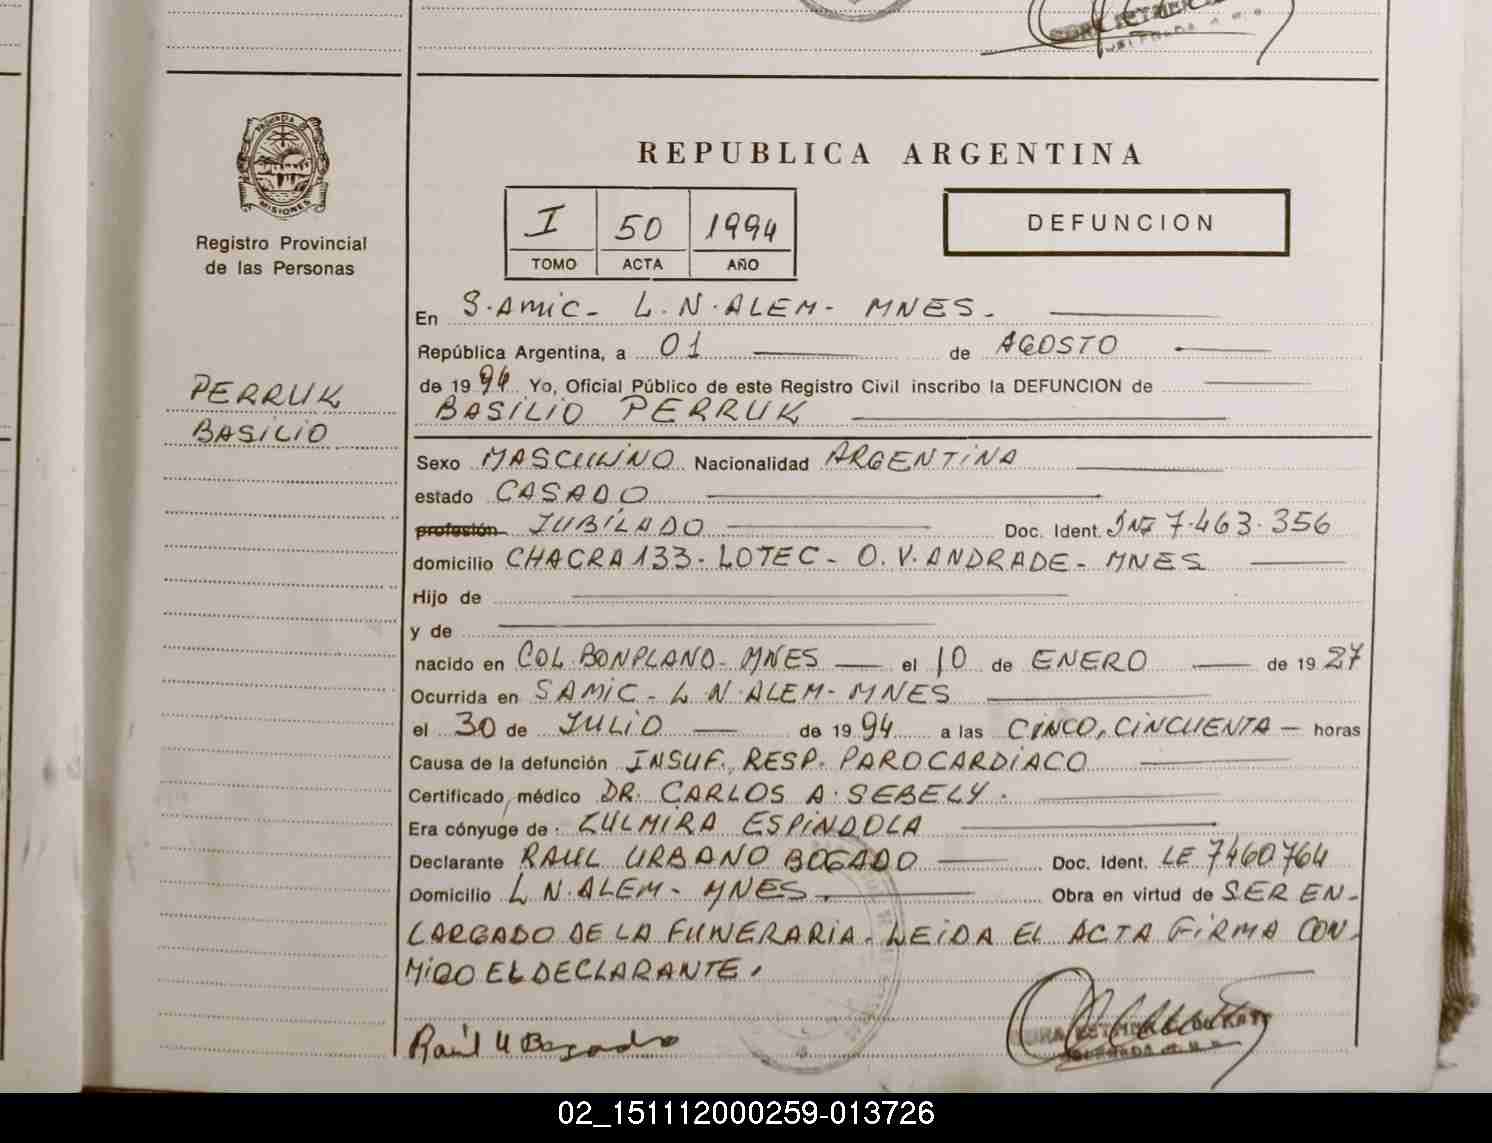 PROVINCIA DE
MISIONES
Registro Provincial
de las Personas
PERRUK
BASILIO
REPUBLICA ARGENTINA
I 50 1994
TOMO ACTA AÑO
DEFUNCION
En S.AMIC- L.N.ALEM- MNES.
República Argentina, a 01 de AGOSTO
de 1994 Yo, Oficial Público de este Registro Civil inscribo la DEFUNCION de
BASILIO PERRUK
Sexo MASCULINO Nacionalidad ARGENTINA
estado CASADO
profesión JUBILADO Doc. Ident. 7.463.356
domicilio CHACRA 133- LOTE C- O.V. ANDRADE- MNES
Hijo de
y de
nacido en COL. BONPLAND- MNES el 10 de ENERO de 1927
Ocurrida en SAMIC- L.N.ALEM- MNES
el 30 de JULIO de 1994 a las CINCO, CINCUENTA horas
Causa de la defunción INSUF. RESP. PAROCARDIACO
Certificado médico DR. CARLOS A. SEBELY.
Era cónyuge de: ZULMIRA ESPINDOLA
Declarante RAUL URBANO BOGADO Doc. Ident. LE 7460764
Domicilio L.N.ALEM- MNES. Obra en virtud de SER EN-
CARGADO DE LA FUNERARIA. LEIDA EL ACTA FIRMA CON-
MIGO EL DECLARANTE.
Raúl U Bogado
02_151112000259-013726